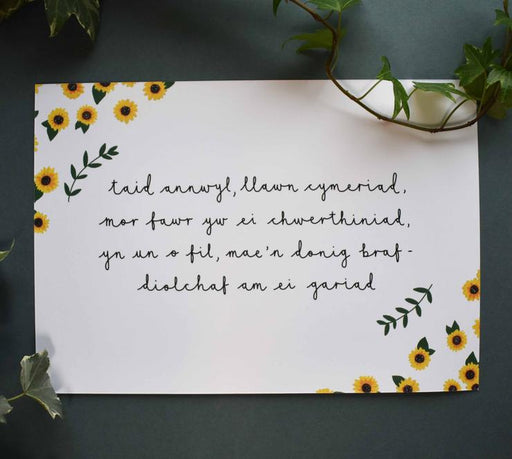 taid annwyl, llawn cymeriad,
mor fawr yw ei chwerthiniad,
yn un o fil, mae'n donig braf -
diolchaf am ei gariad